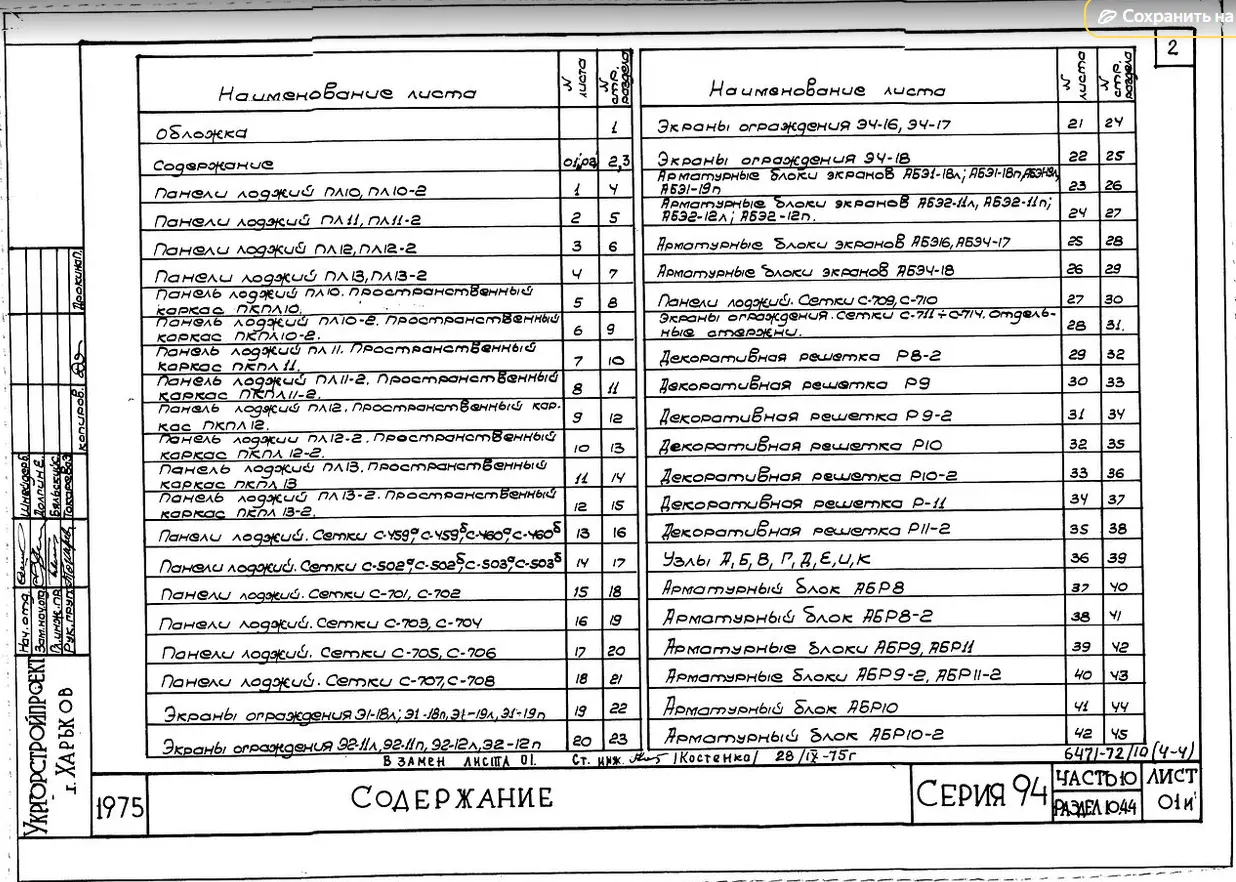 Сохранить на
2
Наименование листа N листа N стр. раздела
Обложка 1
Содержание 01,02 2,3
Панели лоджий ПЛ10, ПЛ10-2 1 4
Панели лоджий ПЛ11, ПЛ11-2 2 5
Панели лоджий ПЛ12, ПЛ12-2 3 6
Панели лоджий ПЛ13, ПЛ13-2 4 7
Панель лоджий ПЛ10. Пространственный
каркас ПКПЛ10. 5 8
Панель лоджий ПЛ10-2. Пространственный
каркас ПКПЛ10-2. 6 9
Панель лоджий ПЛ11. Пространственный
каркас ПКПЛ11. 7 10
Панель лоджий ПЛ11-2. Пространственный
каркас ПКПЛ11-2. 8 11
Панель лоджий ПЛ12. Пространственный кар-
кас ПКПЛ12. 9 12
Панель лоджий ПЛ12-2. Пространственный
каркас ПКПЛ 12-2. 10 13
Панель лоджий ПЛ13. Пространственный
каркас ПКПЛ 13 11 14
Панель лоджий ПЛ13-2. Пространственный
каркас ПКПЛ 13-2. 12 15
Панели лоджий. Сетки С-459а, С-459б, С-460а, С-460б 13 16
Панели лоджий. Сетки С-502а, С-502б, С-503а, С-503б 14 17
Панели лоджий. Сетки С-701, С-702 15 18
Панели лоджий. Сетки С-703, С-704 16 19
Панели лоджий. Сетки С-705, С-706 17 20
Панели лоджий. Сетки С-707, С-708 18 21
Экраны ограждения Э1-18л; Э1-18п, Э1-19л, Э1-19п 19 22
Экраны ограждения Э2-11л, Э2-11п, Э2-12л, Э2-12п 20 23
Наименование листа N листа N стр. раздела
Экраны ограждения Э4-16, Э4-17 21 24
Экраны ограждения Э4-18 22 25
Арматурные блоки экранов АБЭ1-18л; АБЭ1-18п, АБЭ1-19л,
АБЭ1-19п 23 26
Арматурные блоки экранов АБЭ2-11л, АБЭ2-11п;
АБЭ2-12л; АБЭ2-12п. 24 27
Арматурные блоки экранов АБЭ16, АБЭ4-17 25 28
Арматурные блоки экранов АБЭ4-18 26 29
Панели лоджий. Сетки С-709, С-710 27 30
Экраны ограждения. Сетки С-711÷С-714. Отдель-
ные стержни. 28 31.
Декоративная решетка Р8-2 29 32
Декоративная решетка Р9 30 33
Декоративная решетка Р9-2 31 34
Декоративная решетка Р10 32 35
Декоративная решетка Р10-2 33 36
Декоративная решетка Р-11 34 37
Декоративная решетка Р11-2 35 38
Узлы А, Б, В, Г, Д, Е, И, К 36 39
Арматурный блок АБР8 37 40
Арматурный блок АБР8-2 38 41
Арматурные блоки АБР9, АБР11 39 42
Арматурные блоки АБР9-2, АБР11-2 40 43
Арматурный блок АБР10 41 44
Арматурный блок АБР10-2 42 45
Взамен листа 01. Ст. инж. /Костенко/ 28/IX-75г
6471-72/10 (4-4)
1975
Содержание
Серия 94
Часть 10
Раздел 10.4.4
Лист
01и
Укргорстройпроект
г. Харьков
Нач. отд.
Зам. нач. отд.
Гл. инж. пр.
Рук. груп.
Копиров.